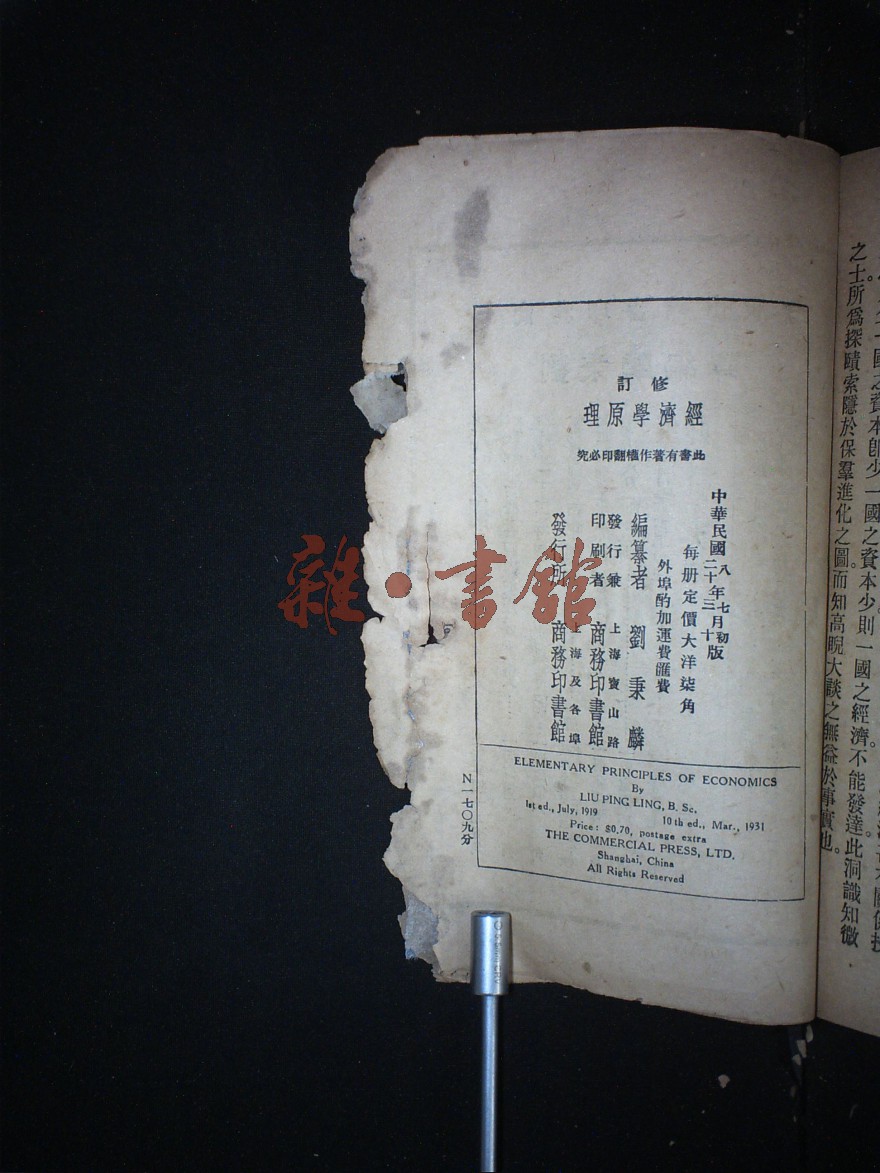 之士所爲探賾索隱於保羣進化之圖而知高睨大談之無益於事實也。
修訂
經濟學原理
此書有著作權翻印必究
中華民國八年七月初版
二十年三月十版
每册定價大洋柒角
外埠酌加運費匯費
編纂者 劉秉麟
發行兼印刷者 上海寶山路 商務印書館
發行所 上海及各埠 商務印書館
ELEMENTARY PRINCIPLES OF ECONOMICS
By
LIU PING LING, B. Sc.
1st ed., July, 1919 10th ed., Mar., 1931
Price: $0.70, postage extra
THE COMMERCIAL PRESS, LTD.
Shanghai, China
All Rights Reserved
N一七〇九分
雜·書館